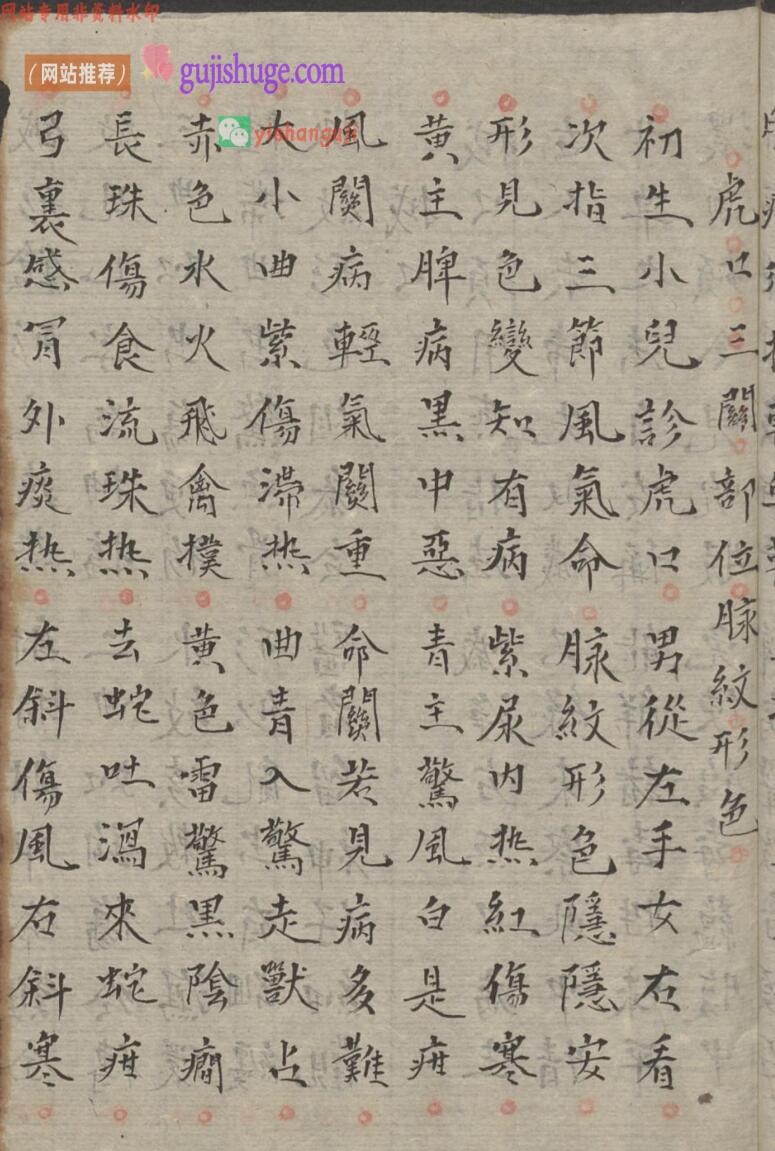 网站专用非资料水印
（网站推荐） gujishuge.com
yishanguji
虎口三關部位脉紋形色
初生小兒診虎口 男從左手女右看
次指三節風氣命 脉紋形色隱隱安
形見色變知有病 紫尿内热紅傷寒
黄主脾病黒中惡 青主驚風白是疳
風関病輕氣関重 命關若見病多難
大小曲紫傷滯热 曲青入驚走獸占
赤色水火飛禽撲 黄色雷驚黒陰癇
長珠傷食流珠热 去蛇吐瀉來蛇疳
弓裏感冐外痰热 左斜傷風右斜寒